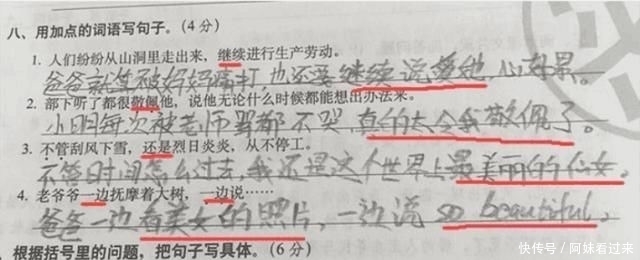 八、用加点的词语写句子。(4分)
1. 人们纷纷从山洞里走出来，继续进行生产劳动。
爸爸就算被妈妈痛打，也还要继续说爱她，心好累。
2. 部下听了都很敬佩他，说他无论什么时候都能想出办法来。
小明每次被老师骂都不哭真的太令我敬佩了。
3. 不管刮风下雪，还是烈日炎炎，从不停工。
不管时间怎么过去，我还是这个世界上最美丽的仙女。
4. 老爷爷一边抚摩着大树，一边说……
爸爸一边看美女的照片，一边说so beautiful。
根据括号里的问题，把句子写具体。(6分)
快传号/阿妹看过来